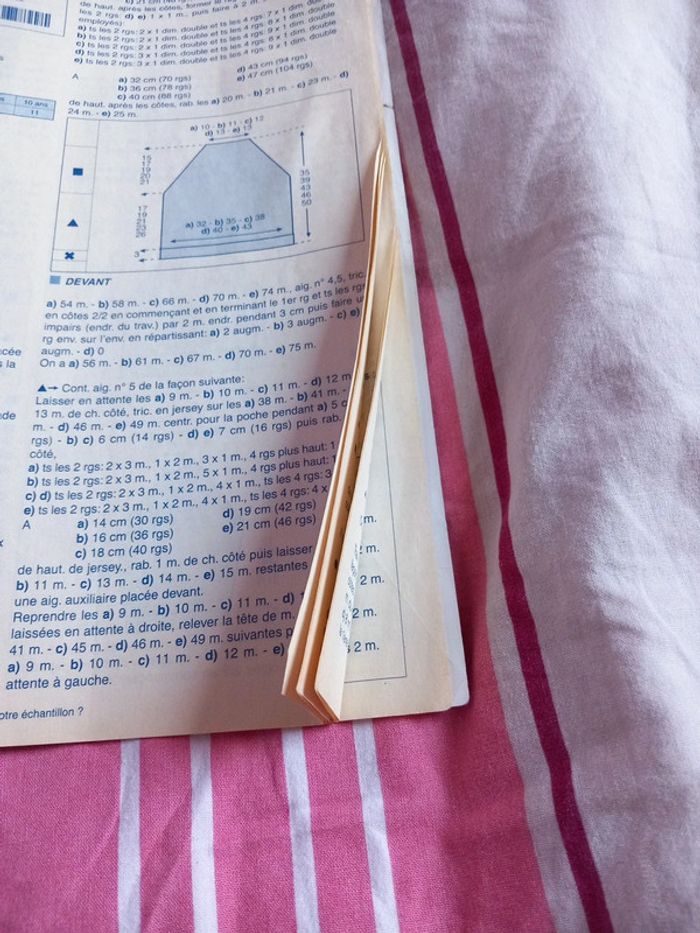 de haut. après les côtes, former le
les 2 rgs: d) e) 1 x 1 m., puis faire à 2 m.
employés):
a) ts les 2 rgs: 2 x 1 dim. double et ts les 4 rgs: 7 x 1 dim. double
b) ts les 2 rgs: 2 x 1 dim. double et ts les 4 rgs: 8 x 1 dim. double
c) ts les 2 rgs: 2 x 1 dim. double et ts les 4 rgs: 9 x 1 dim. double
d) ts les 2 rgs: 3 x 1 dim. double et ts les 4 rgs: 9 x 1 dim. double
e) ts les 2 rgs: 3 x 1 dim. double et ts les 4 rgs: 9 x 1 dim. double
A a) 32 cm (70 rgs) d) 43 cm (94 rgs)
b) 36 cm (78 rgs) e) 47 cm (104 rgs)
c) 40 cm (88 rgs)
de haut. après les côtes, rab. les a) 20 m. - b) 21 m. - c) 23 m. - d)
24 m. - e) 25 m.
10 ans
11
a) 10 - b) 11 - c) 12
d) 13 - e) 13
15
17
19
20
21
35
39
43
46
50
17
19
21
23
26
a) 32 - b) 35 - c) 38
d) 40 - e) 43
3
DEVANT
a) 54 m. - b) 58 m. - c) 66 m. - d) 70 m. - e) 74 m., aig. n° 4,5, tric.
en côtes 2/2 en commençant et en terminant le 1er rg et ts les rgs
impairs (endr. du trav.) par 2 m. endr. pendant 3 cm puis faire u
rg env. sur l'env. en répartissant: a) 2 augm. - b) 3 augm. - c) e)
augm. - d) 0
On a a) 56 m. - b) 61 m. - c) 67 m. - d) 70 m. - e) 75 m.
▲→ Cont. aig. n° 5 de la façon suivante:
Laisser en attente les a) 9 m. - b) 10 m. - c) 11 m. - d) 12 m
13 m. de ch. côté, tric. en jersey sur les a) 38 m. - b) 41 m. -
m. - d) 46 m. - e) 49 m. centr. pour la poche pendant a) 5 c
rgs) - b) c) 6 cm (14 rgs) - d) e) 7 cm (16 rgs) puis rab.
côté,
a) ts les 2 rgs: 2 x 3 m., 1 x 2 m., 3 x 1 m., 4 rgs plus haut: 1
b) ts les 2 rgs: 2 x 3 m., 1 x 2 m., 5 x 1 m., 4 rgs plus haut: 1
c) d) ts les 2 rgs: 2 x 3 m., 1 x 2 m., 4 x 1 m., ts les 4 rgs: 3
e) ts les 2 rgs: 2 x 3 m., 1 x 2 m., 4 x 1 m., ts les 4 rgs: 4 x
A a) 14 cm (30 rgs) d) 19 cm (42 rgs)
b) 16 cm (36 rgs) e) 21 cm (46 rgs)
c) 18 cm (40 rgs)
de haut. de jersey., rab. 1 m. de ch. côté puis laisser
b) 11 m. - c) 13 m. - d) 14 m. - e) 15 m. restantes
une aig. auxiliaire placée devant.
Reprendre les a) 9 m. - b) 10 m. - c) 11 m. - d)
laissées en attente à droite, relever la tête de m.
41 m. - c) 45 m. - d) 46 m. - e) 49 m. suivantes p
a) 9 m. - b) 10 m. - c) 11 m. - d) 12 m. - e)
attente à gauche.
otre échantillon ?
m.
m.
2 m.
2 m.
2 m.